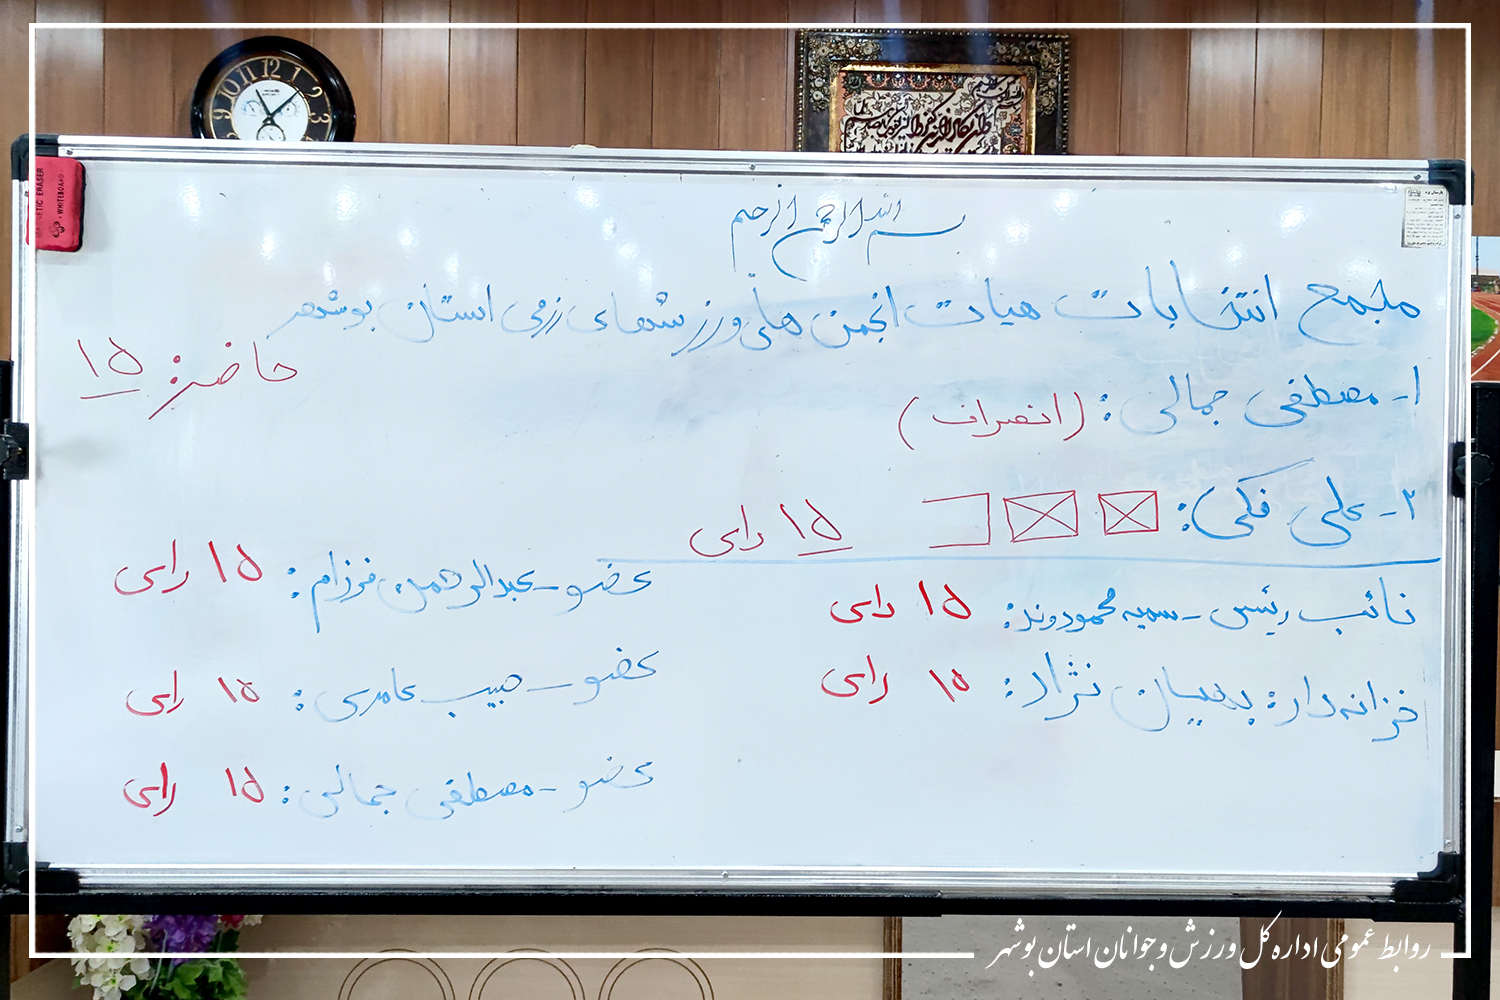 بسم الله الرحمن الرحیم
مجمع انتخابات هیات انجمن های ورزشهای رزمی استان بوشهر
حاضر: ۱۵
۱- مصطفی جمالی: (انصراف)
۲- علی فکی: ۱۵ رای
نائب رئیس - سمیه محمودوند: ۱۵ رای
خزانه دار: پدهیان نژاد: ۱۵ رای
عضو - عبدالرحمن فرزام: ۱۵ رای
عضو - حبیب عامری: ۱۵ رای
عضو - مصطفی جمالی: ۱۵ رای
MAGNETIC ERASER
WHITEBOARD
روابط عمومی اداره کل ورزش و جوانان استان بوشهر